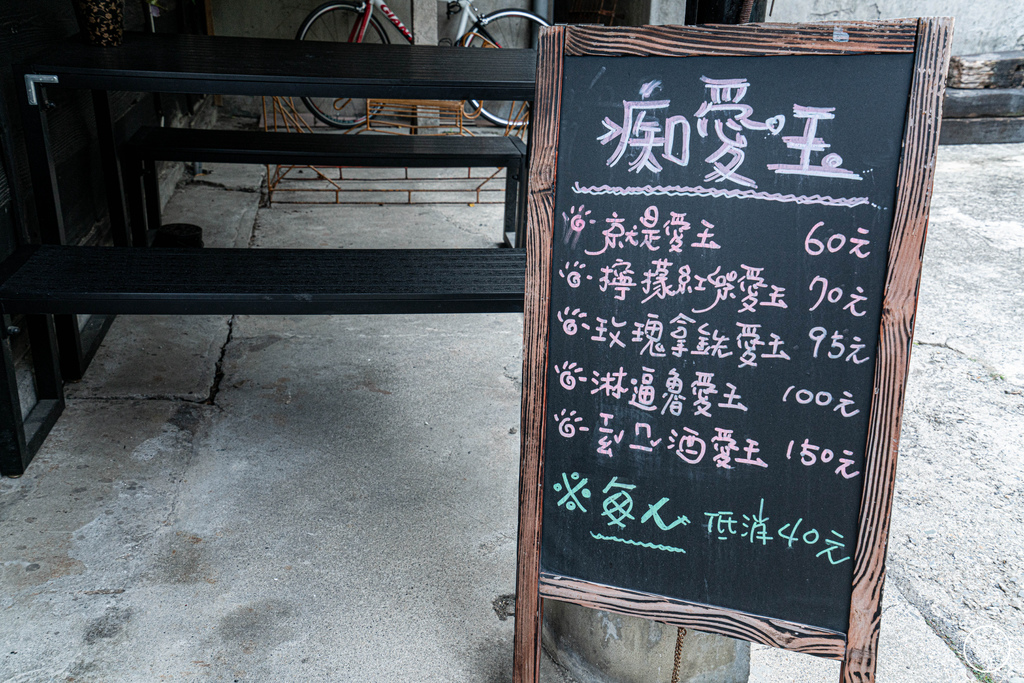 痴愛玉
就是愛玉 60元
檸檬紅愛玉 70元
玫瑰拿銑愛玉 95元
淋逼魯愛玉 100元
ㄒㄧㄠˇㄇㄧˇ酒愛玉 150元
※每人 低消40元